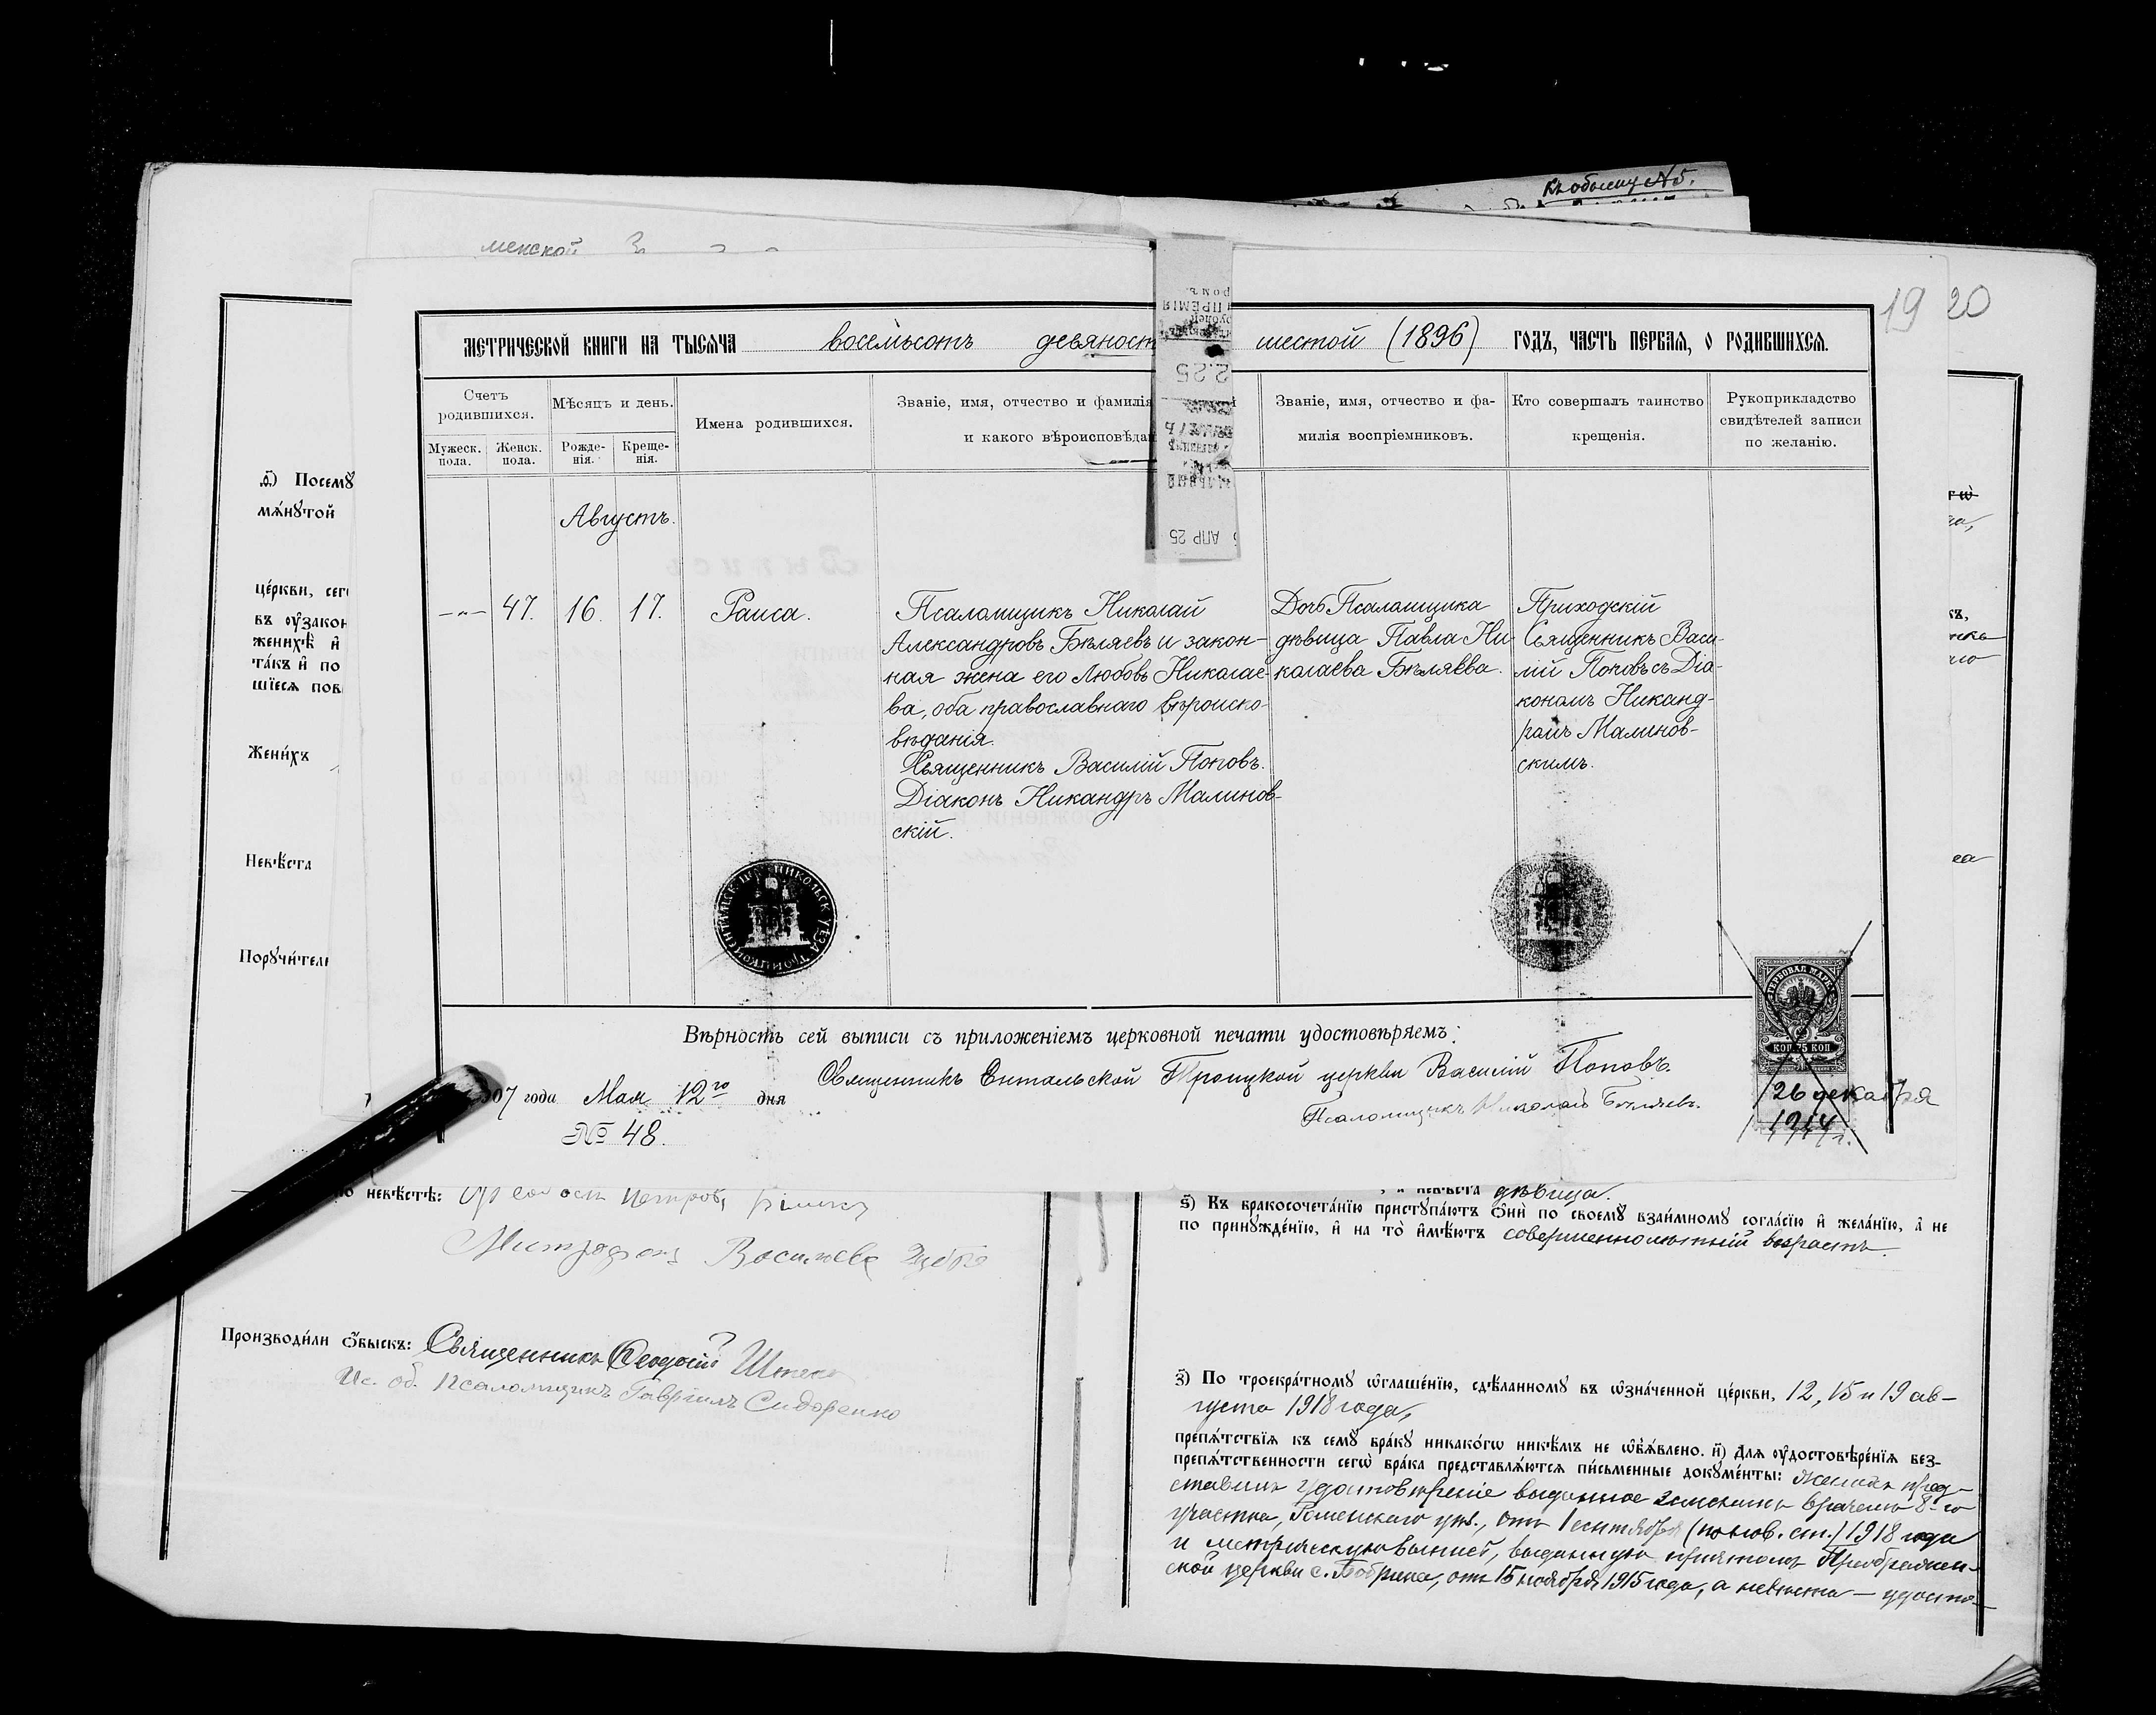 Къ обыску № 5.
менской
19 20
МЕТРИЧЕСКОЙ КНИГИ НА ТЫСЯЧА восемьсотъ девяност шестой (1896) ГОДЪ, ЧАСТЬ ПЕРВАЯ, О РОДИВШИХСЯ.
Счетъ родившихся.
Мужеск. пола.
Женск. пола.
Мѣсяцъ и день.
Рожде-
нія.
Креще-
нія.
Имена родившихся.
Званіе, имя, отчество и фамилія
и какого вѣроисповѣдан
Званіе, имя, отчество и фа-
милія воспріемниковъ.
Кто совершалъ таинство
крещенія.
Рукоприкладство
свидѣтелей записи
по желанію.
2.25
АПР 25
Августъ.
—„— 47. 16. 17. Раиса.
Псаломщикъ Николай
Александровъ Бѣляевъ и закон-
ная жена его Любовь Николае-
ва, оба православнаго вѣроиспо-
вѣданія.
Священникъ Василій Поповъ.
Діаконъ Никандръ Малинов-
скій.
Дочь Псаломщика
дѣвица Павла Ни-
колаева Бѣляева.
Приходскій
Священникъ Васи-
лій Поповъ съ Діа-
кономъ Никанд-
ромъ Малинов-
скимъ.
Вѣрность сей выписи съ приложеніемъ церковной печати удостовѣряемъ:
Священникъ Ентальской Троицкой церкви Василій Поповъ.
Псаломщикъ Николай Бѣляевъ.
07 года Мая 12го дня
№ 48.
ГЕРБОВАЯ МАРКА
КОП 75 КОП
26 декабря
1914 г.
д҃) Посемꙋ
мѧ́нꙋтой
це́ркви, сег
въ ᲂу҆зако́н
женихѣ̀ и҆
та́къ и҆ по
шїеся пов
Жени́хъ
Невѣ́ста
Порꙋчи́тел
по невѣ́стѣ:
Митрофанъ Васильевъ
Производи́ли ѻ҆́быскъ: Священникъ Ѳеодосій
Ис. об. псаломщикъ Гавріилъ Сидоренко
невѣ́ста дѣвица.
ѕ҃) Къ бракосочета́нїю пристꙋпа́ютъ ѻ҆нѝ по своемꙋ̀ взаи́мномꙋ согла́сїю и҆ жела́нїю, а҆ не
по принꙋжде́нїю, и҆ на то̀ и҆мѣ́ютъ совершеннолѣтній возрастъ.
з҃) По троекра́тномꙋ ѡ҆глаше́нїю, сдѣ́ланномꙋ въ ѡ҆зна́ченной це́ркви, 12, 15 и 19 ав-
густа 1918 года,
препѧ́тствїя къ семꙋ̀ бра́кꙋ никако́гѡ никѣ́мъ не ѡ҆б̾ѧ́влено. и҃) Для ᲂу҆достовѣре́нїя без-
препѧ́тственности сегѡ̀ бра́ка представлѧ́ются пи́сьменные докꙋме́нты: женихъ пред-
ставилъ удостовѣреніе выданное земскимъ врачемъ 8-го
участка, Роменскаго уѣз., отъ 1 сентября (по нов. ст.) 1918 года
и метрическую выпись, выданную причтомъ Преображен-
ской церкви с. Бобрика, отъ 15 ноября 1915 года, а невѣста — удосто-